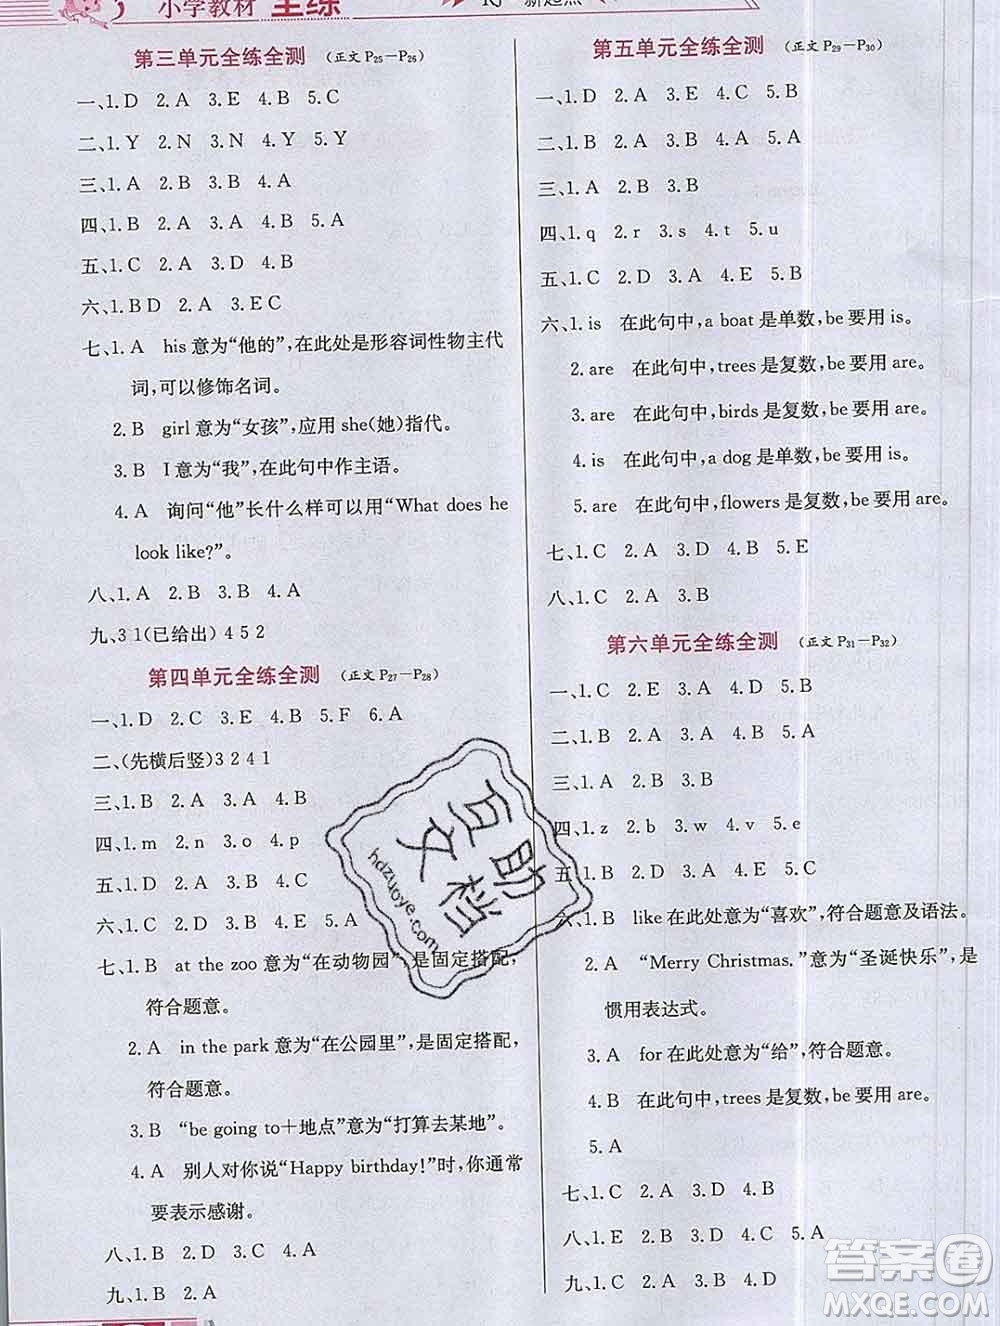 小学教材 全练
新起点
第三单元全练全测 (正文 P25－P26)
一、1.D 2.A 3.E 4.B 5.C
二、1.Y 2.N 3.N 4.Y 5.Y
三、1.A 2.B 3.B 4.A
四、1.B 2.A 3.A 4.B 5.A
五、1.C 2.A 3.D 4.B
六、1.B D 2.A 3.E C
七、1.A his 意为“他的”,在此处是形容词性物主代
词,可以修饰名词。
2.B girl 意为“女孩”,应用 she(她)指代。
3.B I 意为“我”,在此句中作主语。
4.A 询问“他”长什么样可以用“What does he
look like?”。
八、1.A 2.B 3.B 4.A
九、3 1(已给出) 4 5 2
第四单元全练全测 (正文 P27－P28)
一、1.D 2.C 3.E 4.B 5.F 6.A
二、(先横后竖)3 2 4 1
三、1.B 2.A 3.A 4.B
四、1.m 2.n 3.o 4.p
五、1.D 2.A 3.B 4.C
六、1.C 2.D 3.B 4.E 5.A
七、1.B at the zoo 意为“在动物园”,是固定搭配,
符合题意。
2.A in the park 意为“在公园里”,是固定搭配,
符合题意。
3.B “be going to＋地点”意为“打算去某地”。
4.A 别人对你说“Happy birthday!”时,你通常
要表示感谢。
八、1.B 2.D 3.C 4.A
九、1.B 2.A
第五单元全练全测 (正文 P29－P30)
一、1.D 2.A 3.E 4.C 5.B
二、1.B 2.A 3.B 4.A 5.A
三、1.B 2.B 3.B
四、1.q 2.r 3.s 4.t 5.u
五、1.C 2.D 3.A 4.E 5.B
六、1.is 在此句中,a boat 是单数,be 要用 is。
2.are 在此句中,trees 是复数,be 要用 are。
3.are 在此句中,birds 是复数,be 要用 are。
4.is 在此句中,a dog 是单数,be 要用 is。
5.are 在此句中,flowers 是复数,be 要用 are。
七、1.C 2.A 3.D 4.B 5.E
八、1.C 2.A 3.B
第六单元全练全测 (正文 P31－P32)
一、1.C 2.E 3.A 4.D 5.B
二、1.B 2.B 3.A 4.B 5.A
三、1.A 2.B 3.B
四、1.z 2.b 3.y 4.v 5.e
五、1.B 2.D 3.A 4.C
六、1.B like 在此处意为“喜欢”,符合题意及语法。
2.A “Merry Christmas.”意为“圣诞快乐”,是
惯用表达式。
3.A for 在此处意为“给”,符合题意。
4.B 在此句中,trees 是复数,be 要用 are。
5.A
七、1.C 2.A 3.D 4.B
八、1.E 2.B 3.D 4.C 5.A
九、1.C 2.A 3.B 4.D
互助文档
hdzuoye.com
答案圈
MXQE.COM